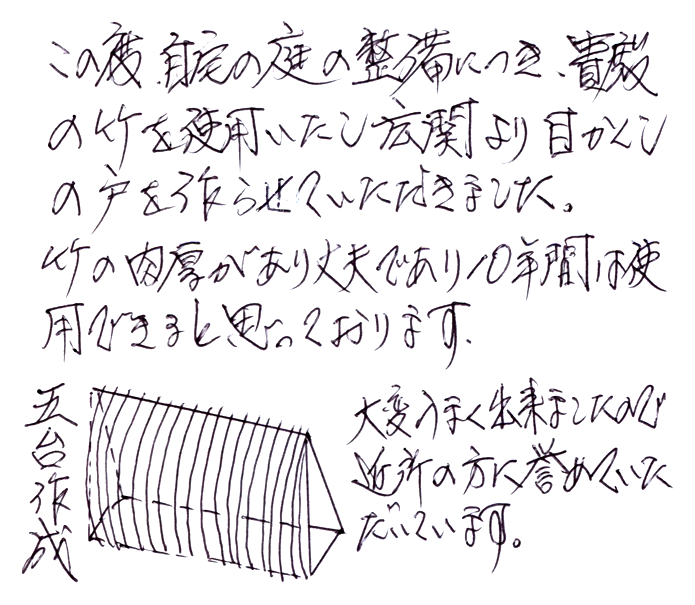 この度自宅の庭の整備につき、貴殿
の竹を使用いたし玄関より目かくし
の戸を作らせていただきました。
竹の肉厚があり丈夫であり10年間は使
用できると思っております。
五台作成
大変うまく出来ましたので
近所の方に誉めていた
だいています。